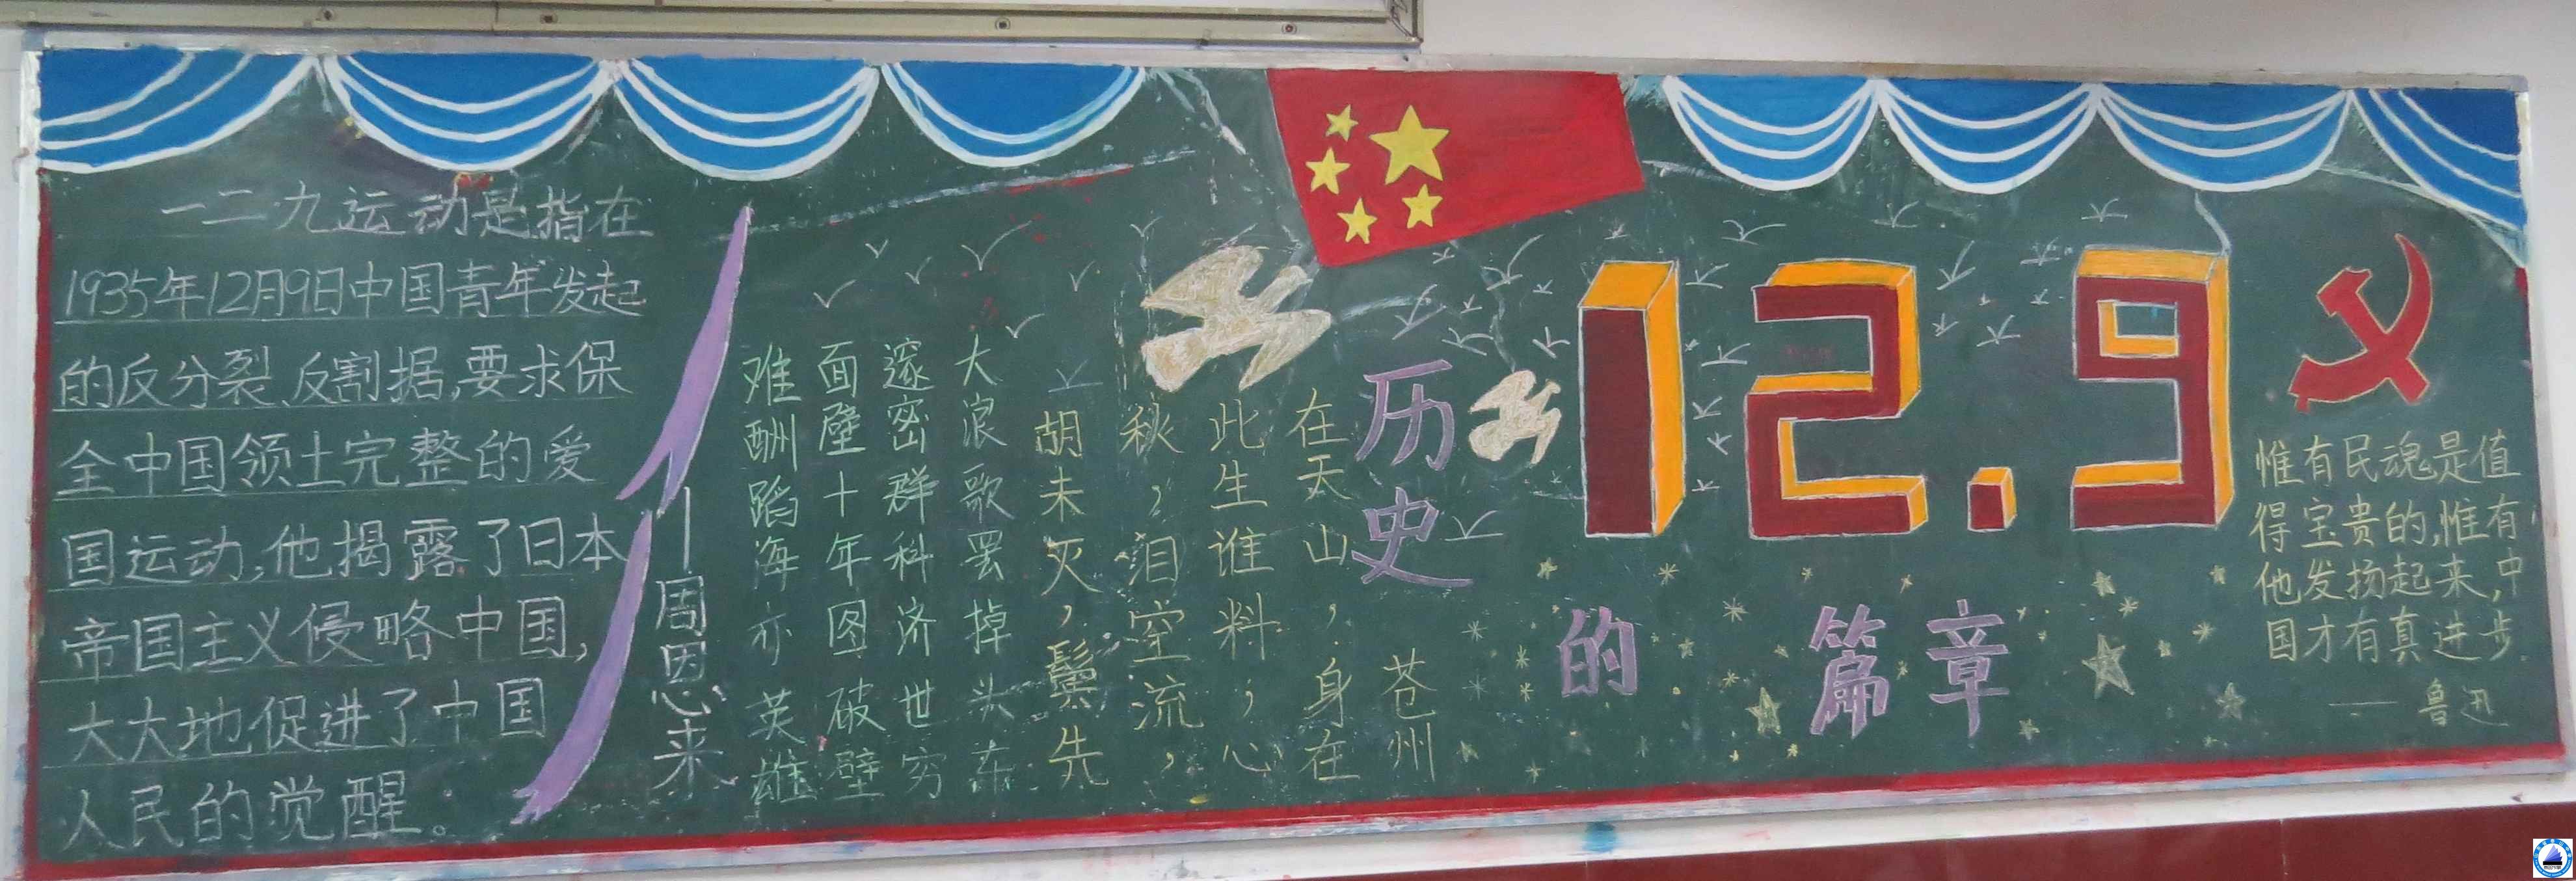 一二·九运动是指在
1935年12月9日中国青年发起
的反分裂、反割据,要求保
全中国领土完整的爱
国运动,他揭露了日本
帝国主义侵略中国,
大大地促进了中国
人民的觉醒。
大浪歌罢掉头东
邃密群科济世穷
面壁十年图破壁
难酬蹈海亦英雄
——周恩来
胡未灭,鬓先
秋,泪空流,
此生谁料,心
在天山,身在
苍州
12.9
历史
的 篇章
惟有民魂是值
得宝贵的,惟有
他发扬起来,中
国才有真进步
—— 鲁迅